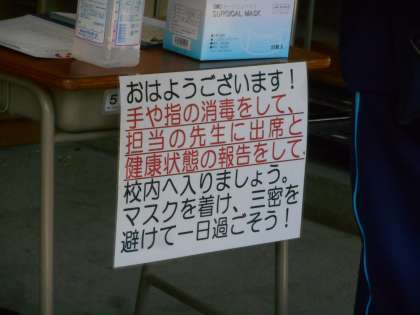 SURGICAL MASK
5
おはようございます!
手や指の消毒をして、
担当の先生に出席と
健康状態の報告をして
校内へ入りましょう。
マスクを着け、三密を
避けて一日過ごそう!